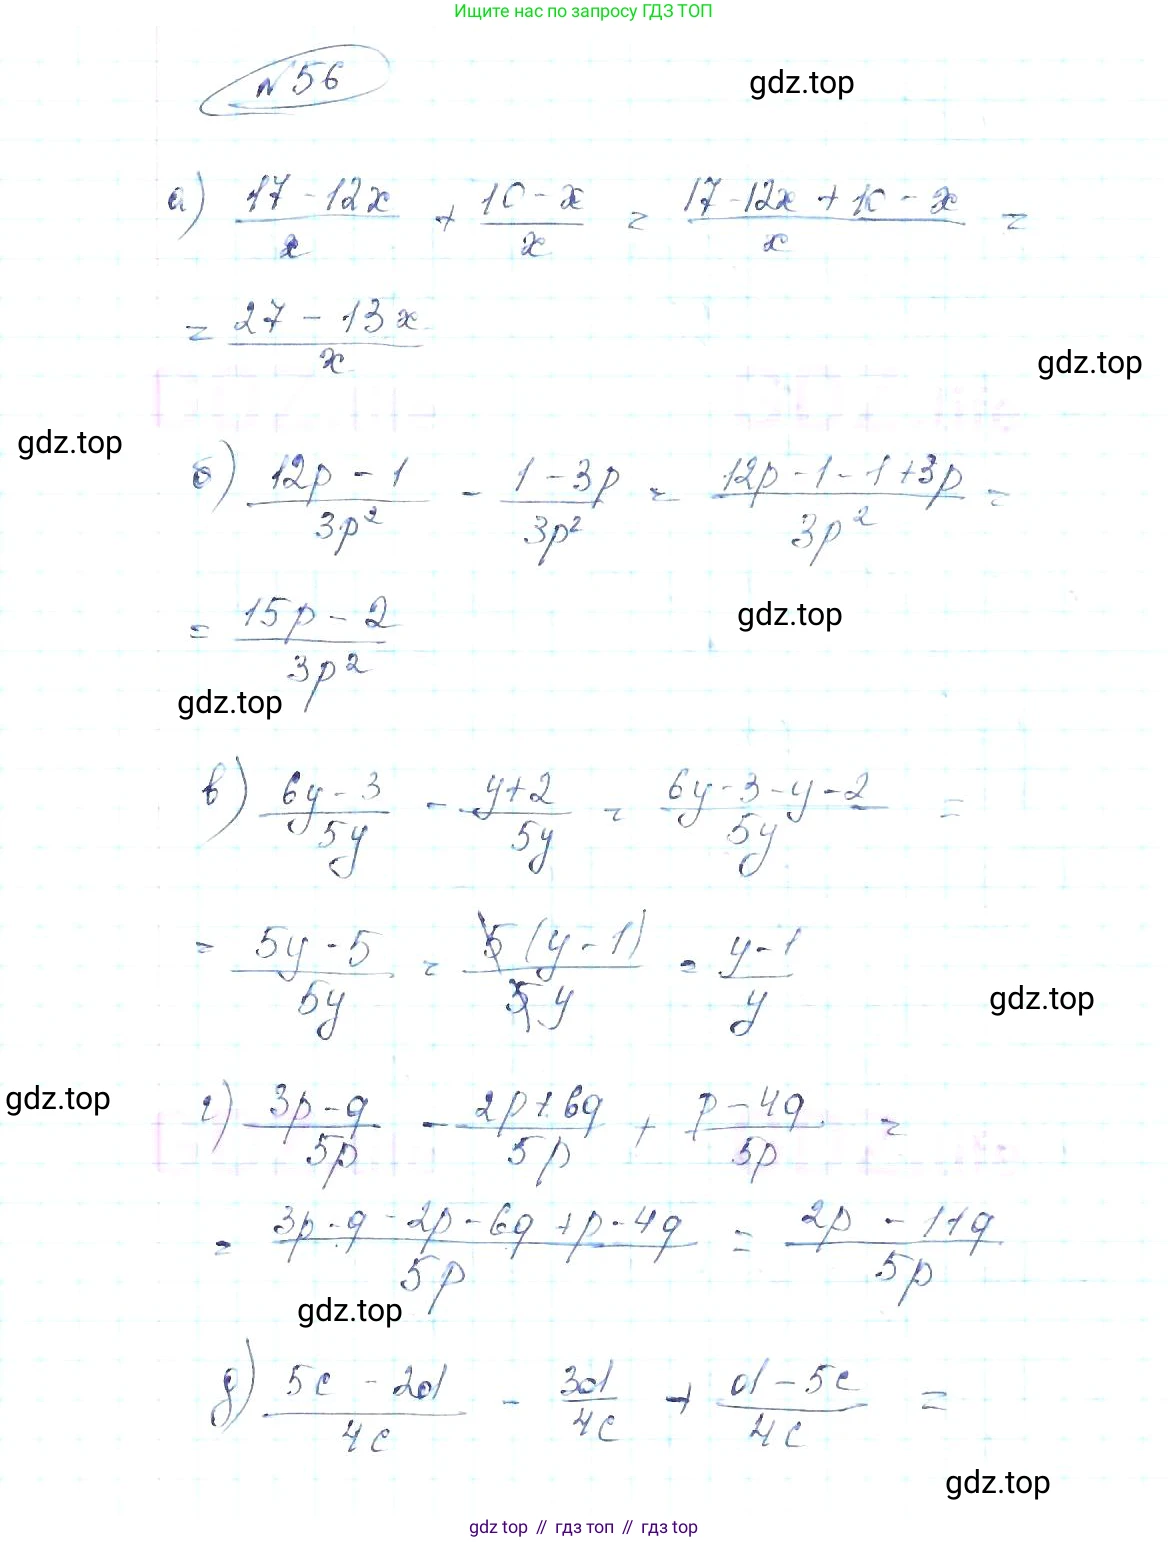 Ищите нас по запросу ГДЗ ТОП
№56
gdz.top
а) (17 - 12x)/x + (10 - x)/x = (17 - 12x + 10 - x)/x =
= (27 - 13x)/x
gdz.top
gdz.top
б) (12p - 1)/3p² - (1 - 3p)/3p² = (12p - 1 - 1 + 3p)/3p² =
= (15p - 2)/3p²
gdz.top
gdz.top
в) (6y - 3)/5y - (y + 2)/5y = (6y - 3 - y - 2)/5y =
= (5y - 5)/5y = 5(y - 1)/5y = (y - 1)/y
gdz.top
gdz.top
г) (3p - q)/5p - (2p + 6q)/5p + (p - 4q)/5p =
= (3p - q - 2p - 6q + p - 4q)/5p = (2p - 11q)/5p
gdz.top
д) (5c - 2d)/4c - 3d/4c + (d - 5c)/4c =
gdz.top
gdz top // гдз топ // gdz top